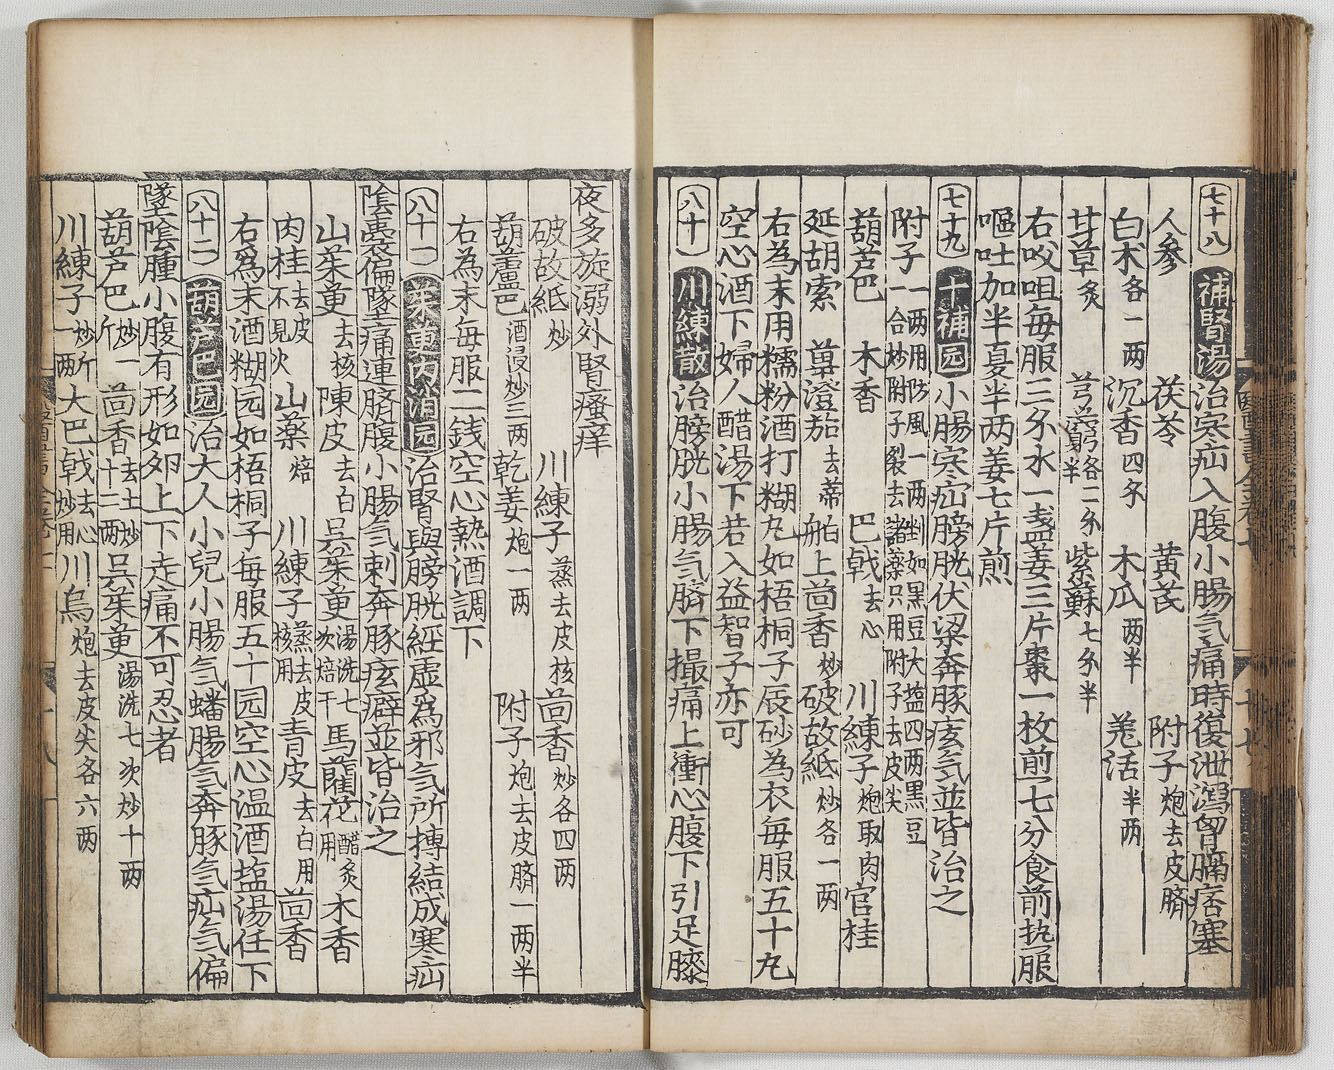 七十八 補腎湯 治寒疝入腹小腸气痛時復泄瀉胷膈痞塞
人參 茯苓 黄芪 附子炮去皮臍
白朮各一两 沉香四分 木瓜两半 羌活半两
甘草炙 芎藭各二分半 紫蘇七分半
右㕮咀每服三分水一盞姜三片棗一枚煎七分食前热服
嘔吐加半夏半两姜七片煎
七十九 十補园 小腸寒疝膀胱伏梁奔豚痃气並皆治之
附子一两用防風一两剉如黑豆大塩四两黒豆一合炒附子裂去諸薬只用附子去皮尖
葫芦巴 木香 巴戟去心 川練子炮取肉 官桂
延胡索 蓽澄茄去蒂 舶上茴香炒 破故紙炒各一两
右為末用糯粉酒打糊丸如梧桐子辰砂為衣每服五十丸
空心酒下婦人醋湯下若入益智子亦可
八十 川練散 治膀胱小腸气臍下撮痛上衝心腹下引足膝
夜多旋溺外腎瘙痒
破故紙炒 川練子蒸去皮核 茴香炒各四两
葫蘆巴酒浸炒三两 乾姜炮一两 附子炮去皮臍一两半
右為末每服二銭空心熱酒調下
八十一 茱萸内消园 治腎與膀胱經虚爲邪气所搏結成寒疝
陰嚢偏墜痛連臍腹小腸气刺奔豚痃癖並皆治之
山茱萸去核 陳皮去白 呉茱萸湯洗七次焙干 馬藺花醋炙用 木香
肉桂去皮不見火 山藥焙 川練子蒸去皮核用 青皮去白用 茴香
右爲末酒糊园如梧桐子每服五十园空心温酒塩湯任下
八十二 胡芦巴园 治大人小兒小腸气蟠腸气奔豚气疝气偏
墜陰腫小腹有形如夘上下走痛不可忍者
葫芦巴炒一斤 茴香去土炒十二两 呉茱萸湯洗七次炒十两
川練子炒一斤两 大巴戟去心炒用 川烏炮去皮尖各六两